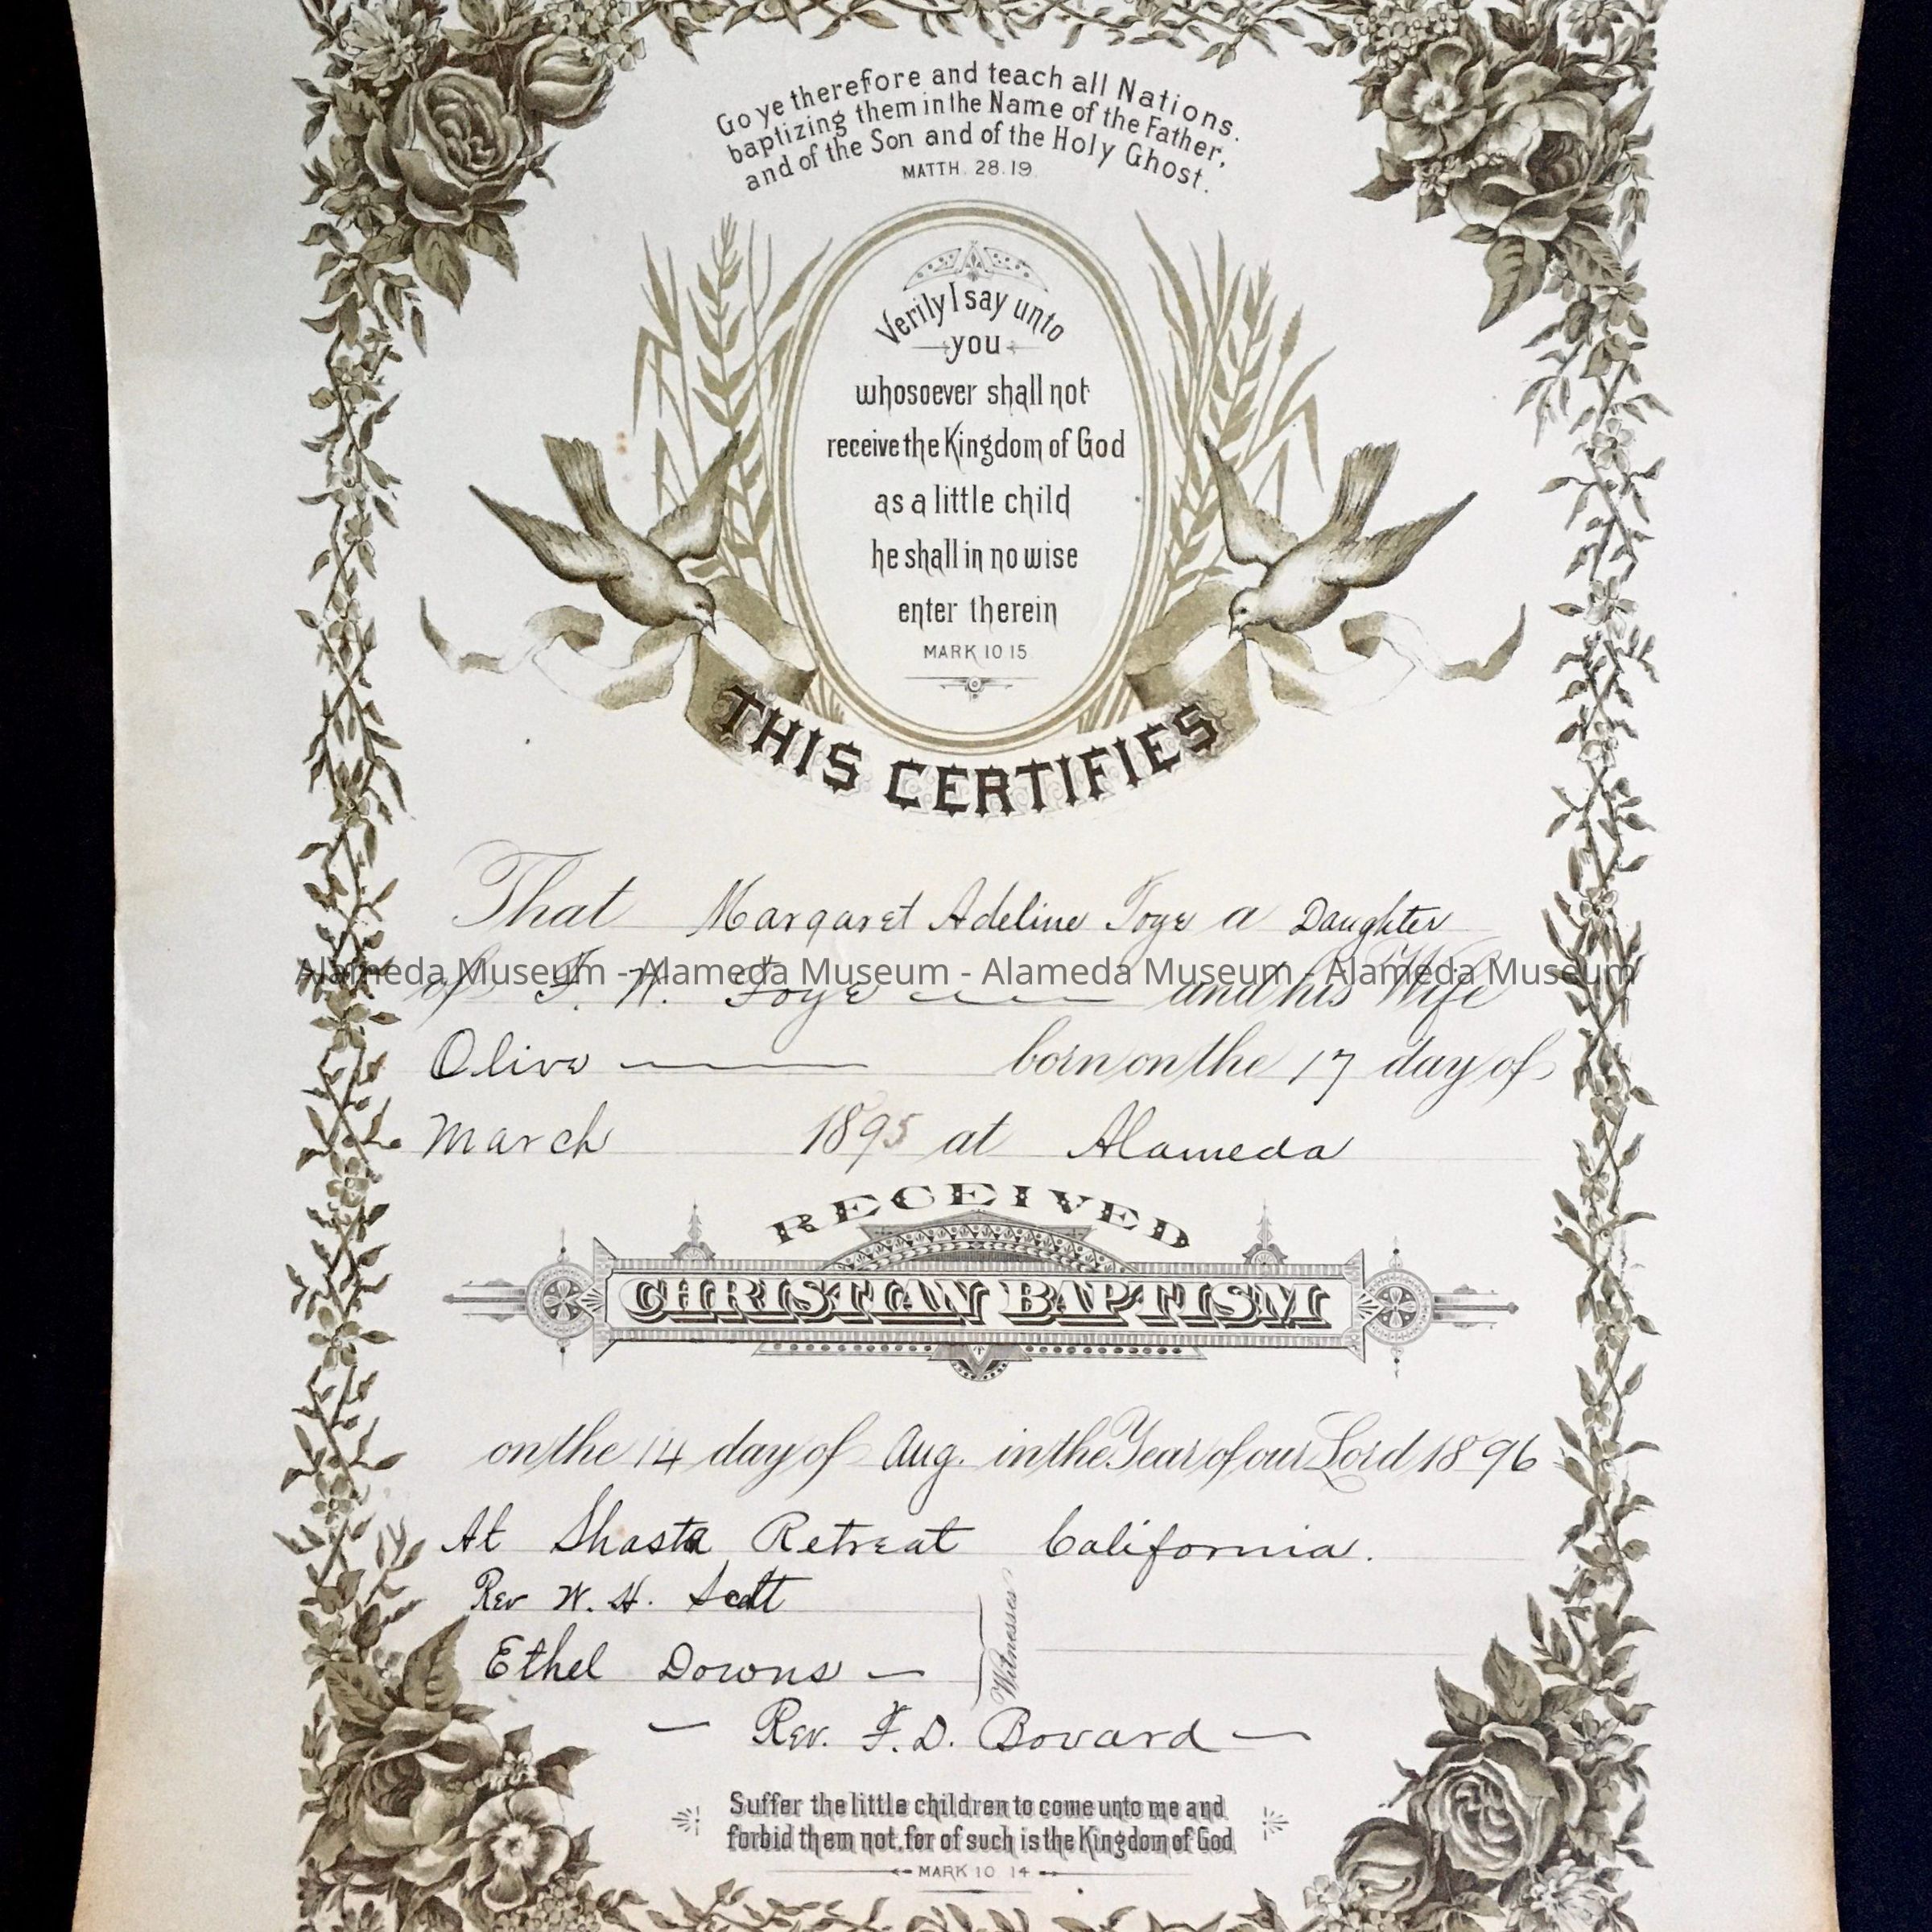 Go ye therefore and teach all Nations.
baptizing them in the Name of the Father,
and of the Son and of the Holy Ghost.
MATTH. 28.19.
Verily I say unto
you
whosoever shall not
receive the Kingdom of God
as a little child
he shall in no wise
enter therein
MARK 10 15
THIS CERTIFIES
That Margaret Adeline Foye a Daughter
Alameda Museum - Alameda Museum - Alameda Museum - Alameda Museum
of F. W. Foye and his Wife
Olive born on the 17 day of
March 1895 at Alameda
RECEIVED
CHRISTIAN BAPTISM
on the 14 day of Aug. in the Year of our Lord 1896
At Shasta Retreat California.
Rev W. H. Scott
Ethel Downs —
Witnesses
— Rev. F. D. Bovard —
Suffer the little children to come unto me and
forbid them not, for of such is the Kingdom of God
MARK 10 14